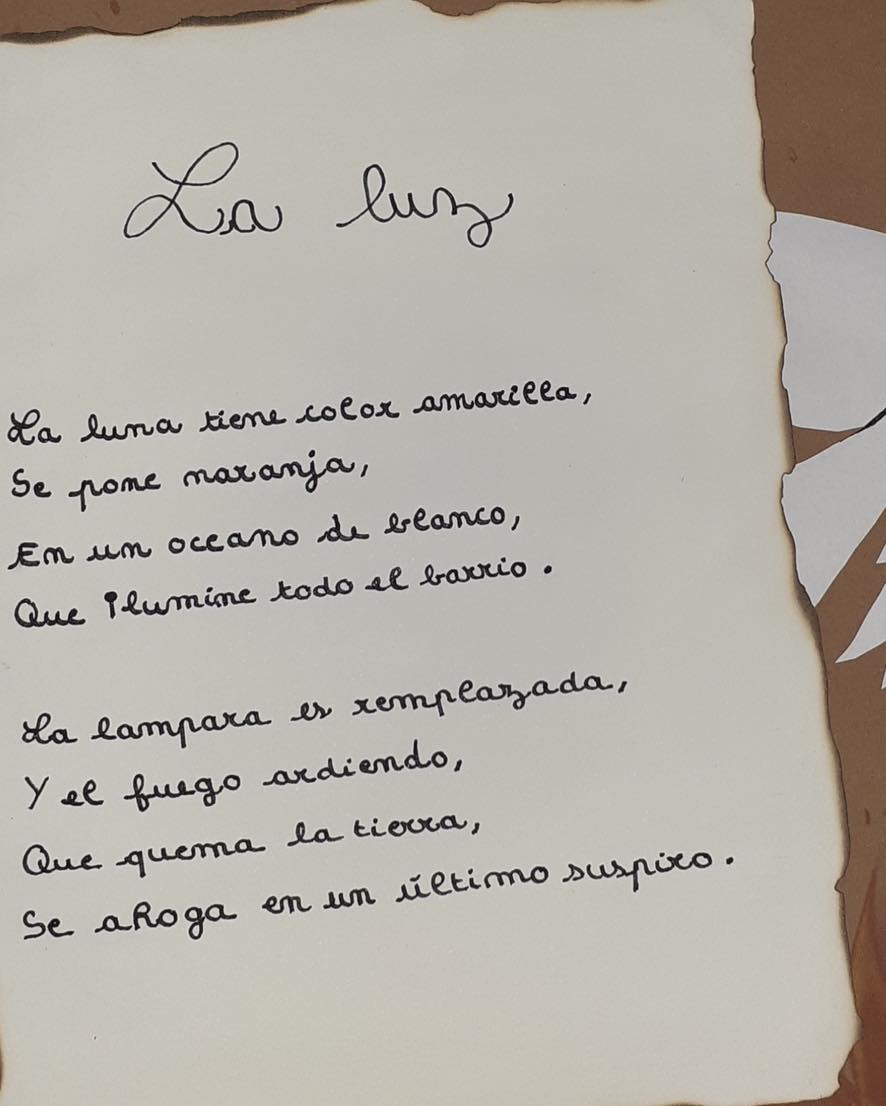 La luz
La luna tiene color amarilla,
Se pone naranja,
En un oceano de blanco,
Que ilumine todo el barrio.
La lampara es remplazada,
Y el fuego ardiendo,
Que quema la tierra,
Se ahoga en un último suspiro.